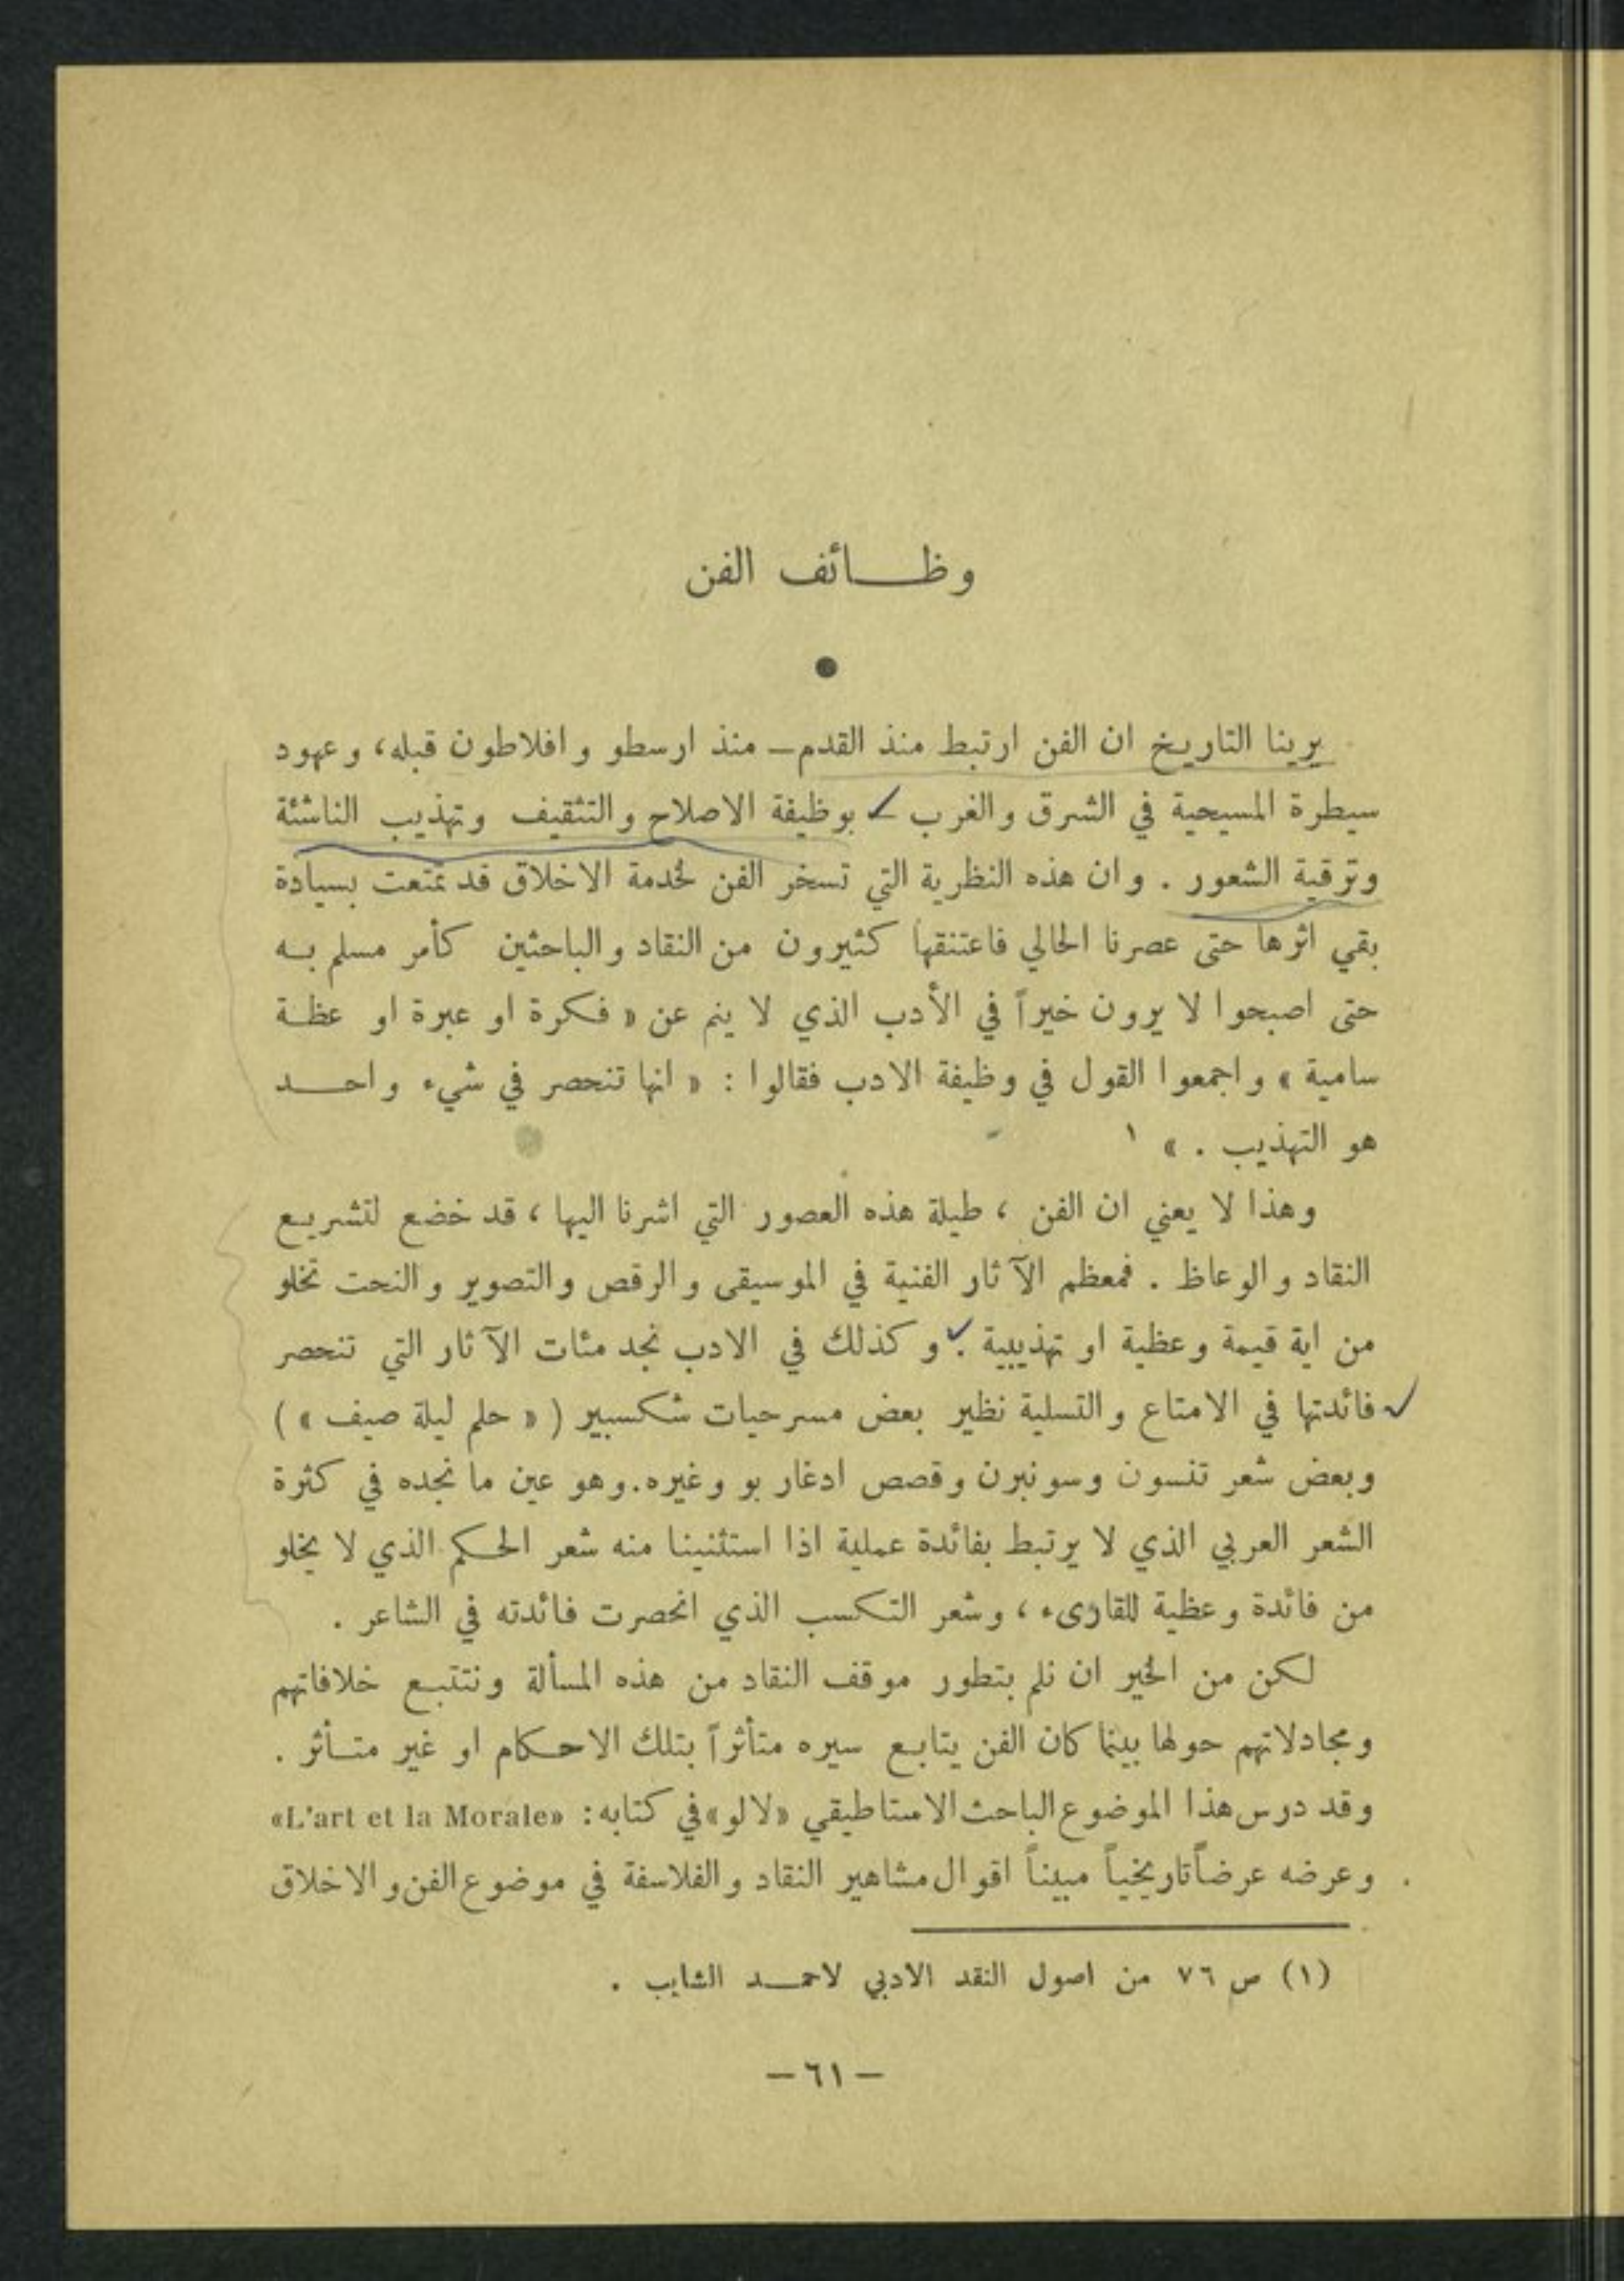 وظائف الفن
يرينا التاريخ ان الفن ارتبط منذ القدم ـ منذ ارسطو وافلاطون قبله، وعهود
سيطرة المسيحية في الشرق والغرب ـ بوظيفة الاصلاح والتثقيف وتهذيب الناشئة
وترقية الشعور . وان هذه النظرية التي تسخر الفن لخدمة الاخلاق قد تمتعت بسيادة
بقي اثرها حتى عصرنا الحالي فاعتنقها كثيرون من النقاد والباحثين كأمر مسلم به
حتى اصبحوا لا يرون خيراً في الأدب الذي لا ينم عن « فكرة او عبرة او عظة
سامية » واجمعوا القول في وظيفة الادب فقالوا : « انها تنحصر في شيء واحد
هو التهذيب . » ١
وهذا لا يعني ان الفن ، طيلة هذه العصور التي اشرنا اليها ، قد خضع لتشريع
النقاد والوعاظ . فمعظم الآثار الفنية في الموسيقى والرقص والتصوير والنحت تخلو
من اية قيمة وعظية او تهذيبية . وكذلك في الادب نجد مئات الآثار التي تنحصر
فائدتها في الامتاع والتسلية نظير بعض مسرحيات شكسبير ( « حلم ليلة صيف » )
وبعض شعر تنسون وسونبرن وقصص ادغار بو وغيره. وهو عين ما نجده في كثرة
الشعر العربي الذي لا يرتبط بفائدة عملية اذا استثنينا منه شعر الحكم الذي لا يخلو
من فائدة وعظية للقارىء ، وشعر التكسب الذي انحصرت فائدته في الشاعر .
لكن من الخير ان نلم بتطور موقف النقاد من هذه المسألة ونتتبع خلافاتهم
ومجادلاتهم حولها بينما كان الفن يتابع سيره متأثراً بتلك الاحكام او غير متأثر .
وقد درس هذا الموضوع الباحث الاستاطيقي «لالو» في كتابه: «L'art et la Morale»
وعرضه عرضاً تاريخياً مبيناً اقوال مشاهير النقاد والفلاسفة في موضوع الفن والاخلاق
(١) ص ٧٦ من اصول النقد الادبي لاحمد الشايب .
— ٦١ —